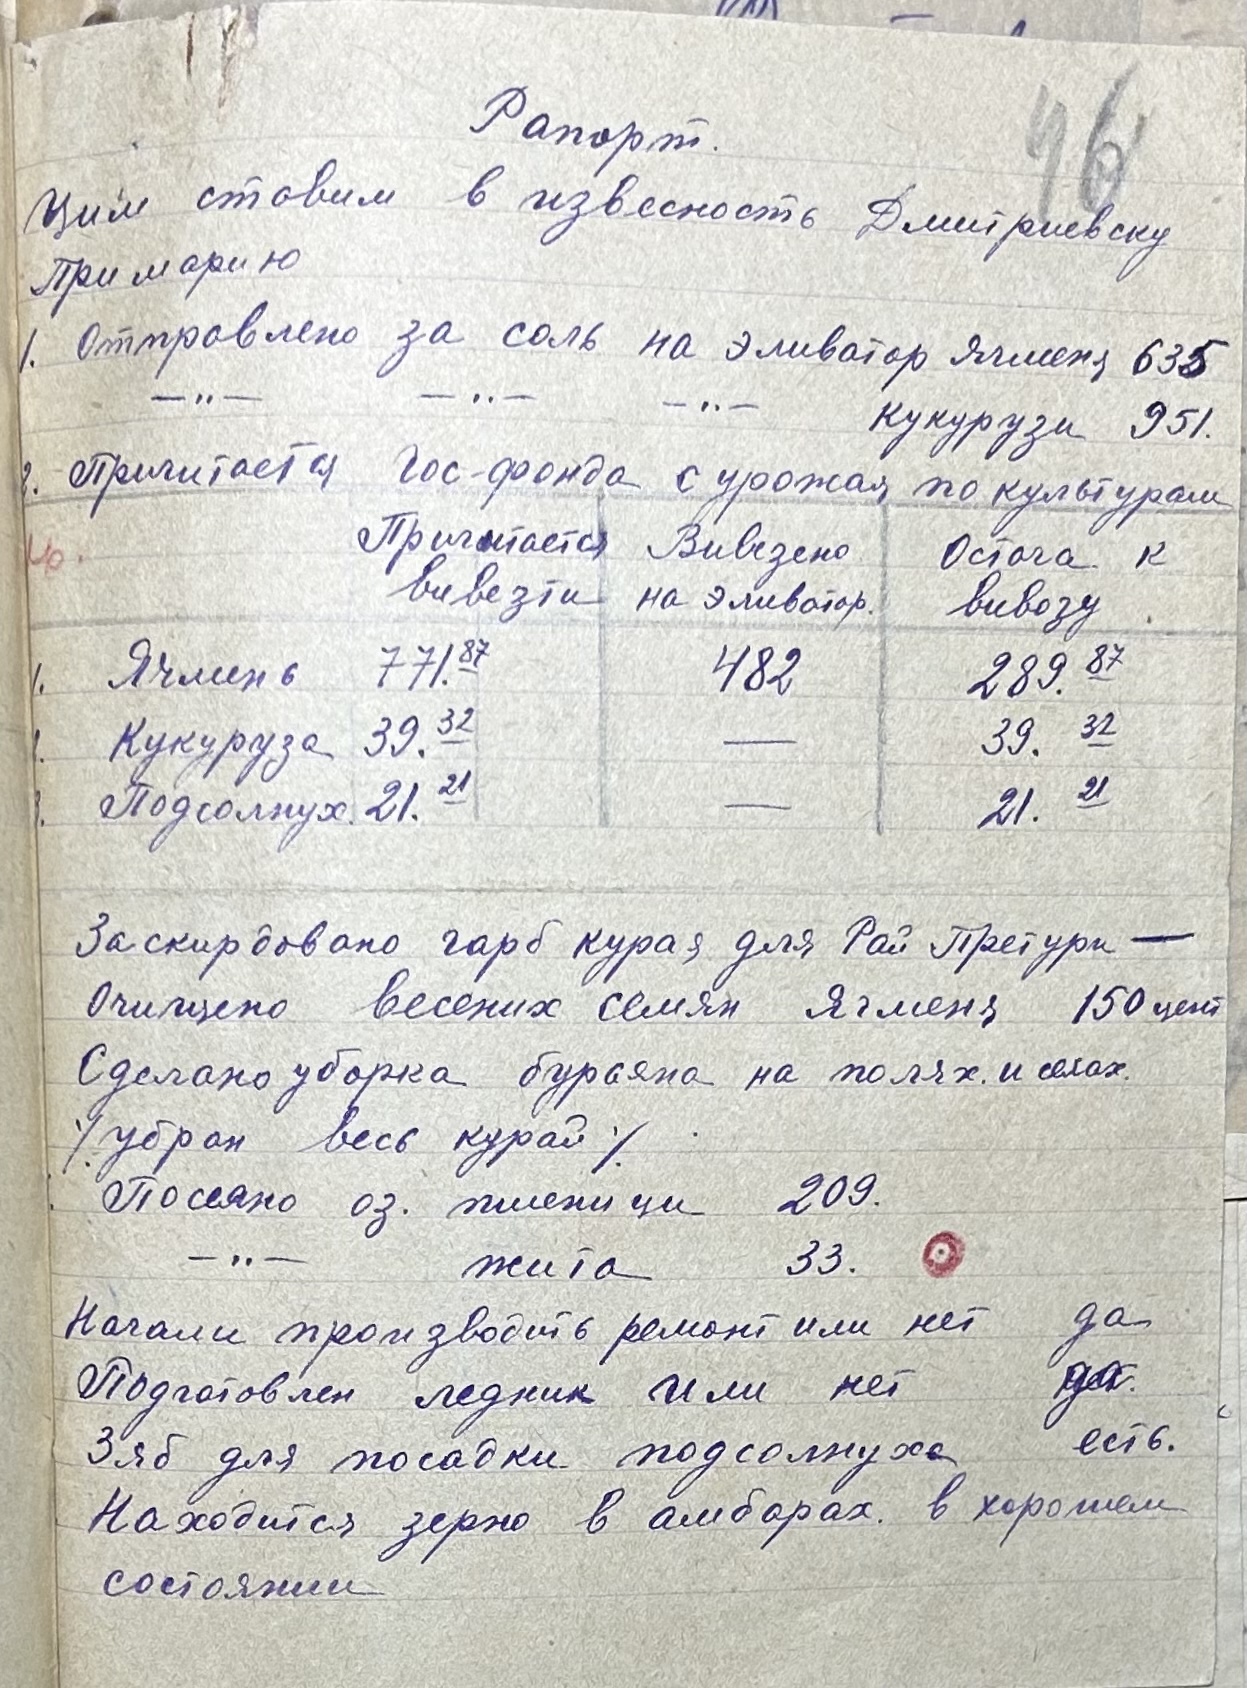 46
Рапорт.
Цим ставим в извесность Дмитриевску
Примарию
1. Отправлено за соль на эливатор Ячменя 635
—„— —„— —„— Кукурузи 951.
2. Причитается Гос-фонда с урожая по культурам
Причитается Вивезено Остача к
вивезти на эливатор. вивозу.
1. Ячмень 771.87 482 289.87
2. Кукуруза 39.32 — 39.32
3. Подсолнух. 21.21 — 21.21
Заскирдовано гарб курая для Рай Претури —
Очищено весених семян Ячменя 150 цент
Сделано уборка бурьяна на полях. и селах.
/убран весь курай/.
Посеяно оз. пшеници 209.
—„— жита 33.
Начали производить ремонт или нет да
Подготовлен ледник или нет
Зяб для посадки подсолнуха есть.
Находится зерно в амбарах. в хорошем
состоянии